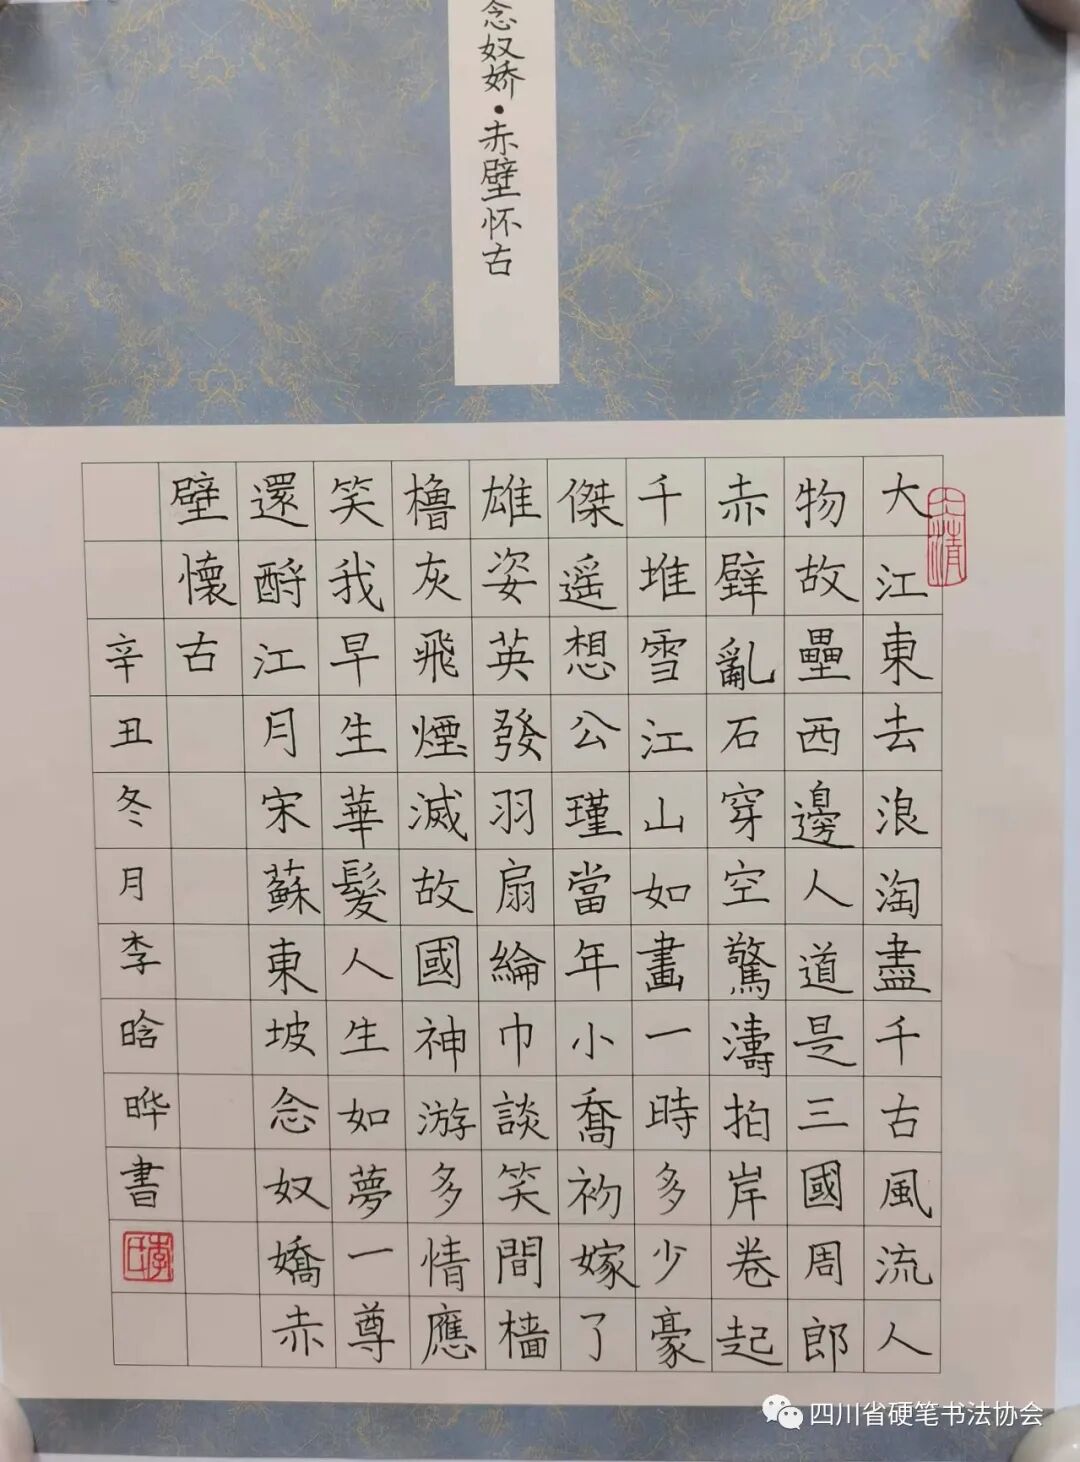 念奴娇·赤壁怀古
大江東去浪淘盡千古風流人
物故壘西邊人道是三國周郎
赤壁亂石穿空驚濤拍岸卷起
千堆雪江山如畫一時多少豪
傑遥想公瑾當年小喬初嫁了
雄姿英發羽扇綸巾談笑間檣
櫓灰飛煙滅故國神游多情應
笑我早生華髮人生如夢一尊
還酹江月宋蘇東坡念奴嬌赤
壁懷古
辛丑冬月李晗晔書
李氏
四川省硬笔书法协会